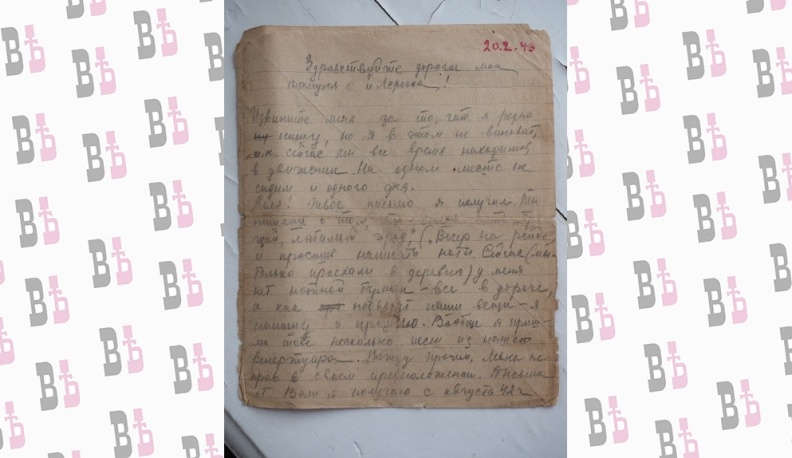 20.2.43
Здравствуйте дорогие мои
мамуля и Лёрочка!
Извините меня за то, что я редко
пишу, но я в этом не виноват,
сейчас мы все время находимся
в движении. На одном месте не
сидим и одного дня.
Твоё письмо я получил. Ты
пишешь о том,
"Вечер на рейде"
и просишь написать ноты. Сейчас (мы
только приехали в деревню) у меня
нет нотной бумаги – все в дороге,
а как подвезут наши вещи – я
напишу и пришлю. Вообще я приш-
лю тебе несколько песен из нашего
репертуара. Между прочим, мама не
права в своем предположении. Письма
от Вали я получаю с августа 42 г
ВѢ